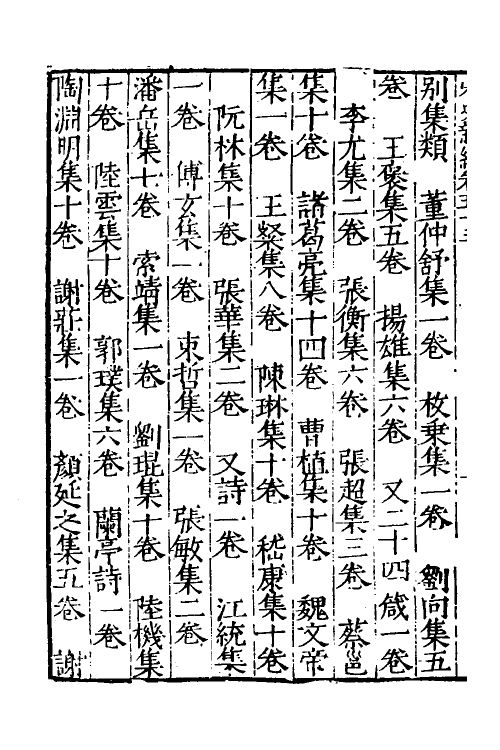 別集類　董仲舒集一卷　枚乗集一卷　劉向集五
卷　王褒集五卷　揚雄集六卷　又二十四箴一卷
李尤集二卷　張衡集六卷　張超集三卷　蔡邕
集十卷　諸葛亮集十四卷　曹植集十卷　魏文帝
集一卷　王粲集八卷　陳琳集十卷　嵇康集十卷
阮林集十卷　張華集二卷　又詩一卷　江統集
一卷　傅玄集一卷　束哲集一卷　張敏集二卷
潘岳集七卷　索靖集一卷　劉琨集十卷　陸機集
十卷　陸雲集十卷　郭璞集六卷　蘭亭詩一卷
陶淵明集十卷　謝莊集一卷　顏延之集五卷　謝